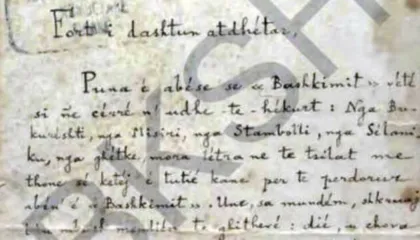 Fort i dashtun atdhétar,
Puna é abésé sé « Bashkimit » vété
si ñe cévré n' udhe - te - hékurt : Nga Bu-
kuréshti, nga Misiri, nga Stambolli, nga Sélani-
ku, nga ghitke, mora létra ne te tsilat me
thone sé ketéj é tutié kane per te perdorur
abén' é « Bashkimit ». Une, sa mundém, shkruaj
te ghithevé : dié,
BKSH